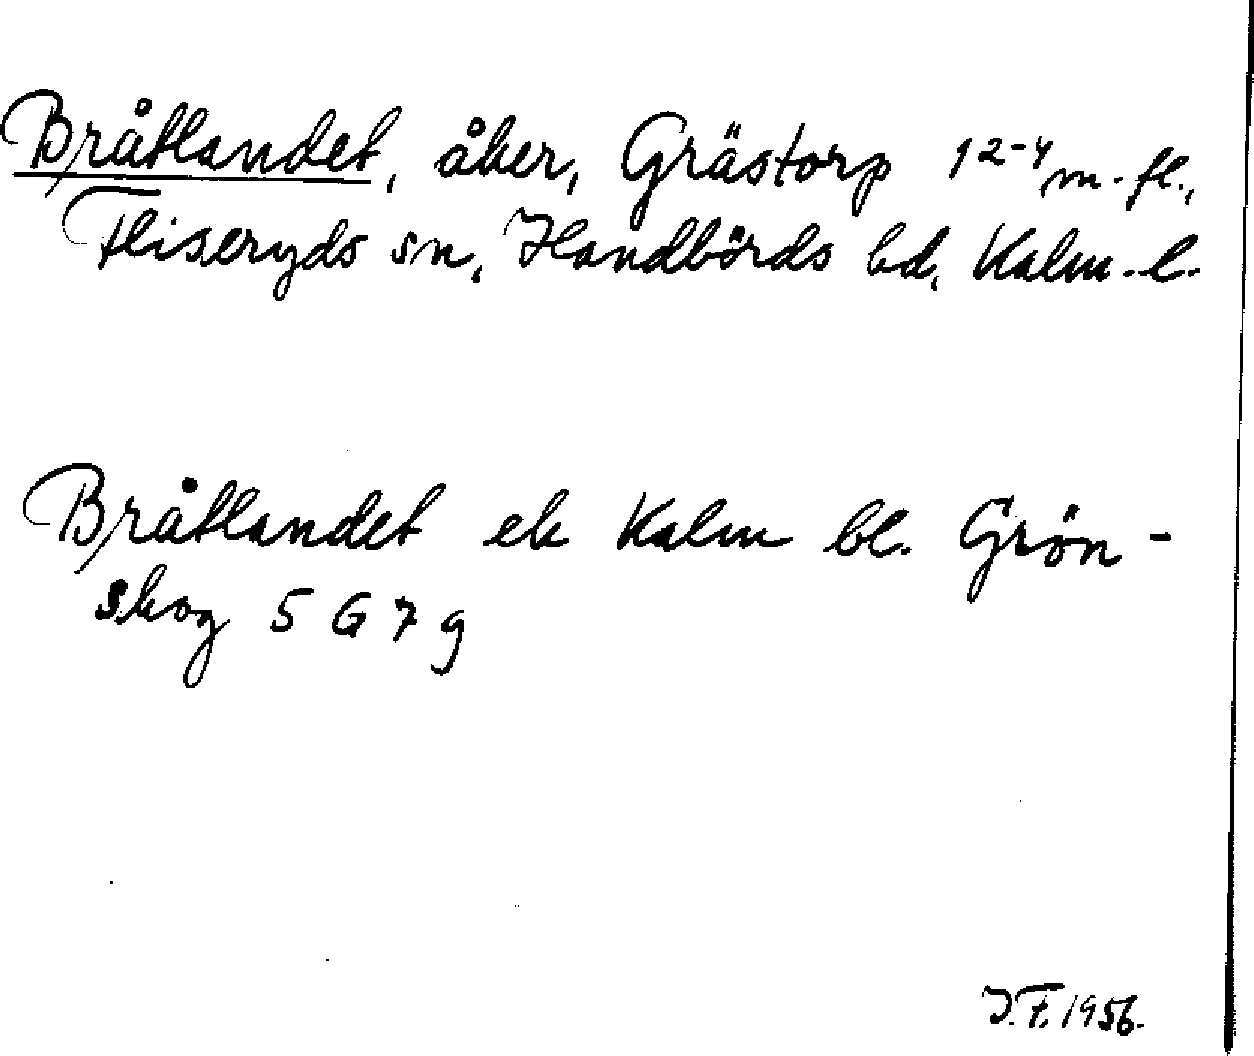 Bråtlandet, åker, Grästorp 12-4 m. fl.,
Fliseryds sn, Handbörds hd, Kalm. l.
Bråtlandet ek Kalm bl. Grön-
skog 5 G 7 g
J.F. 1956.